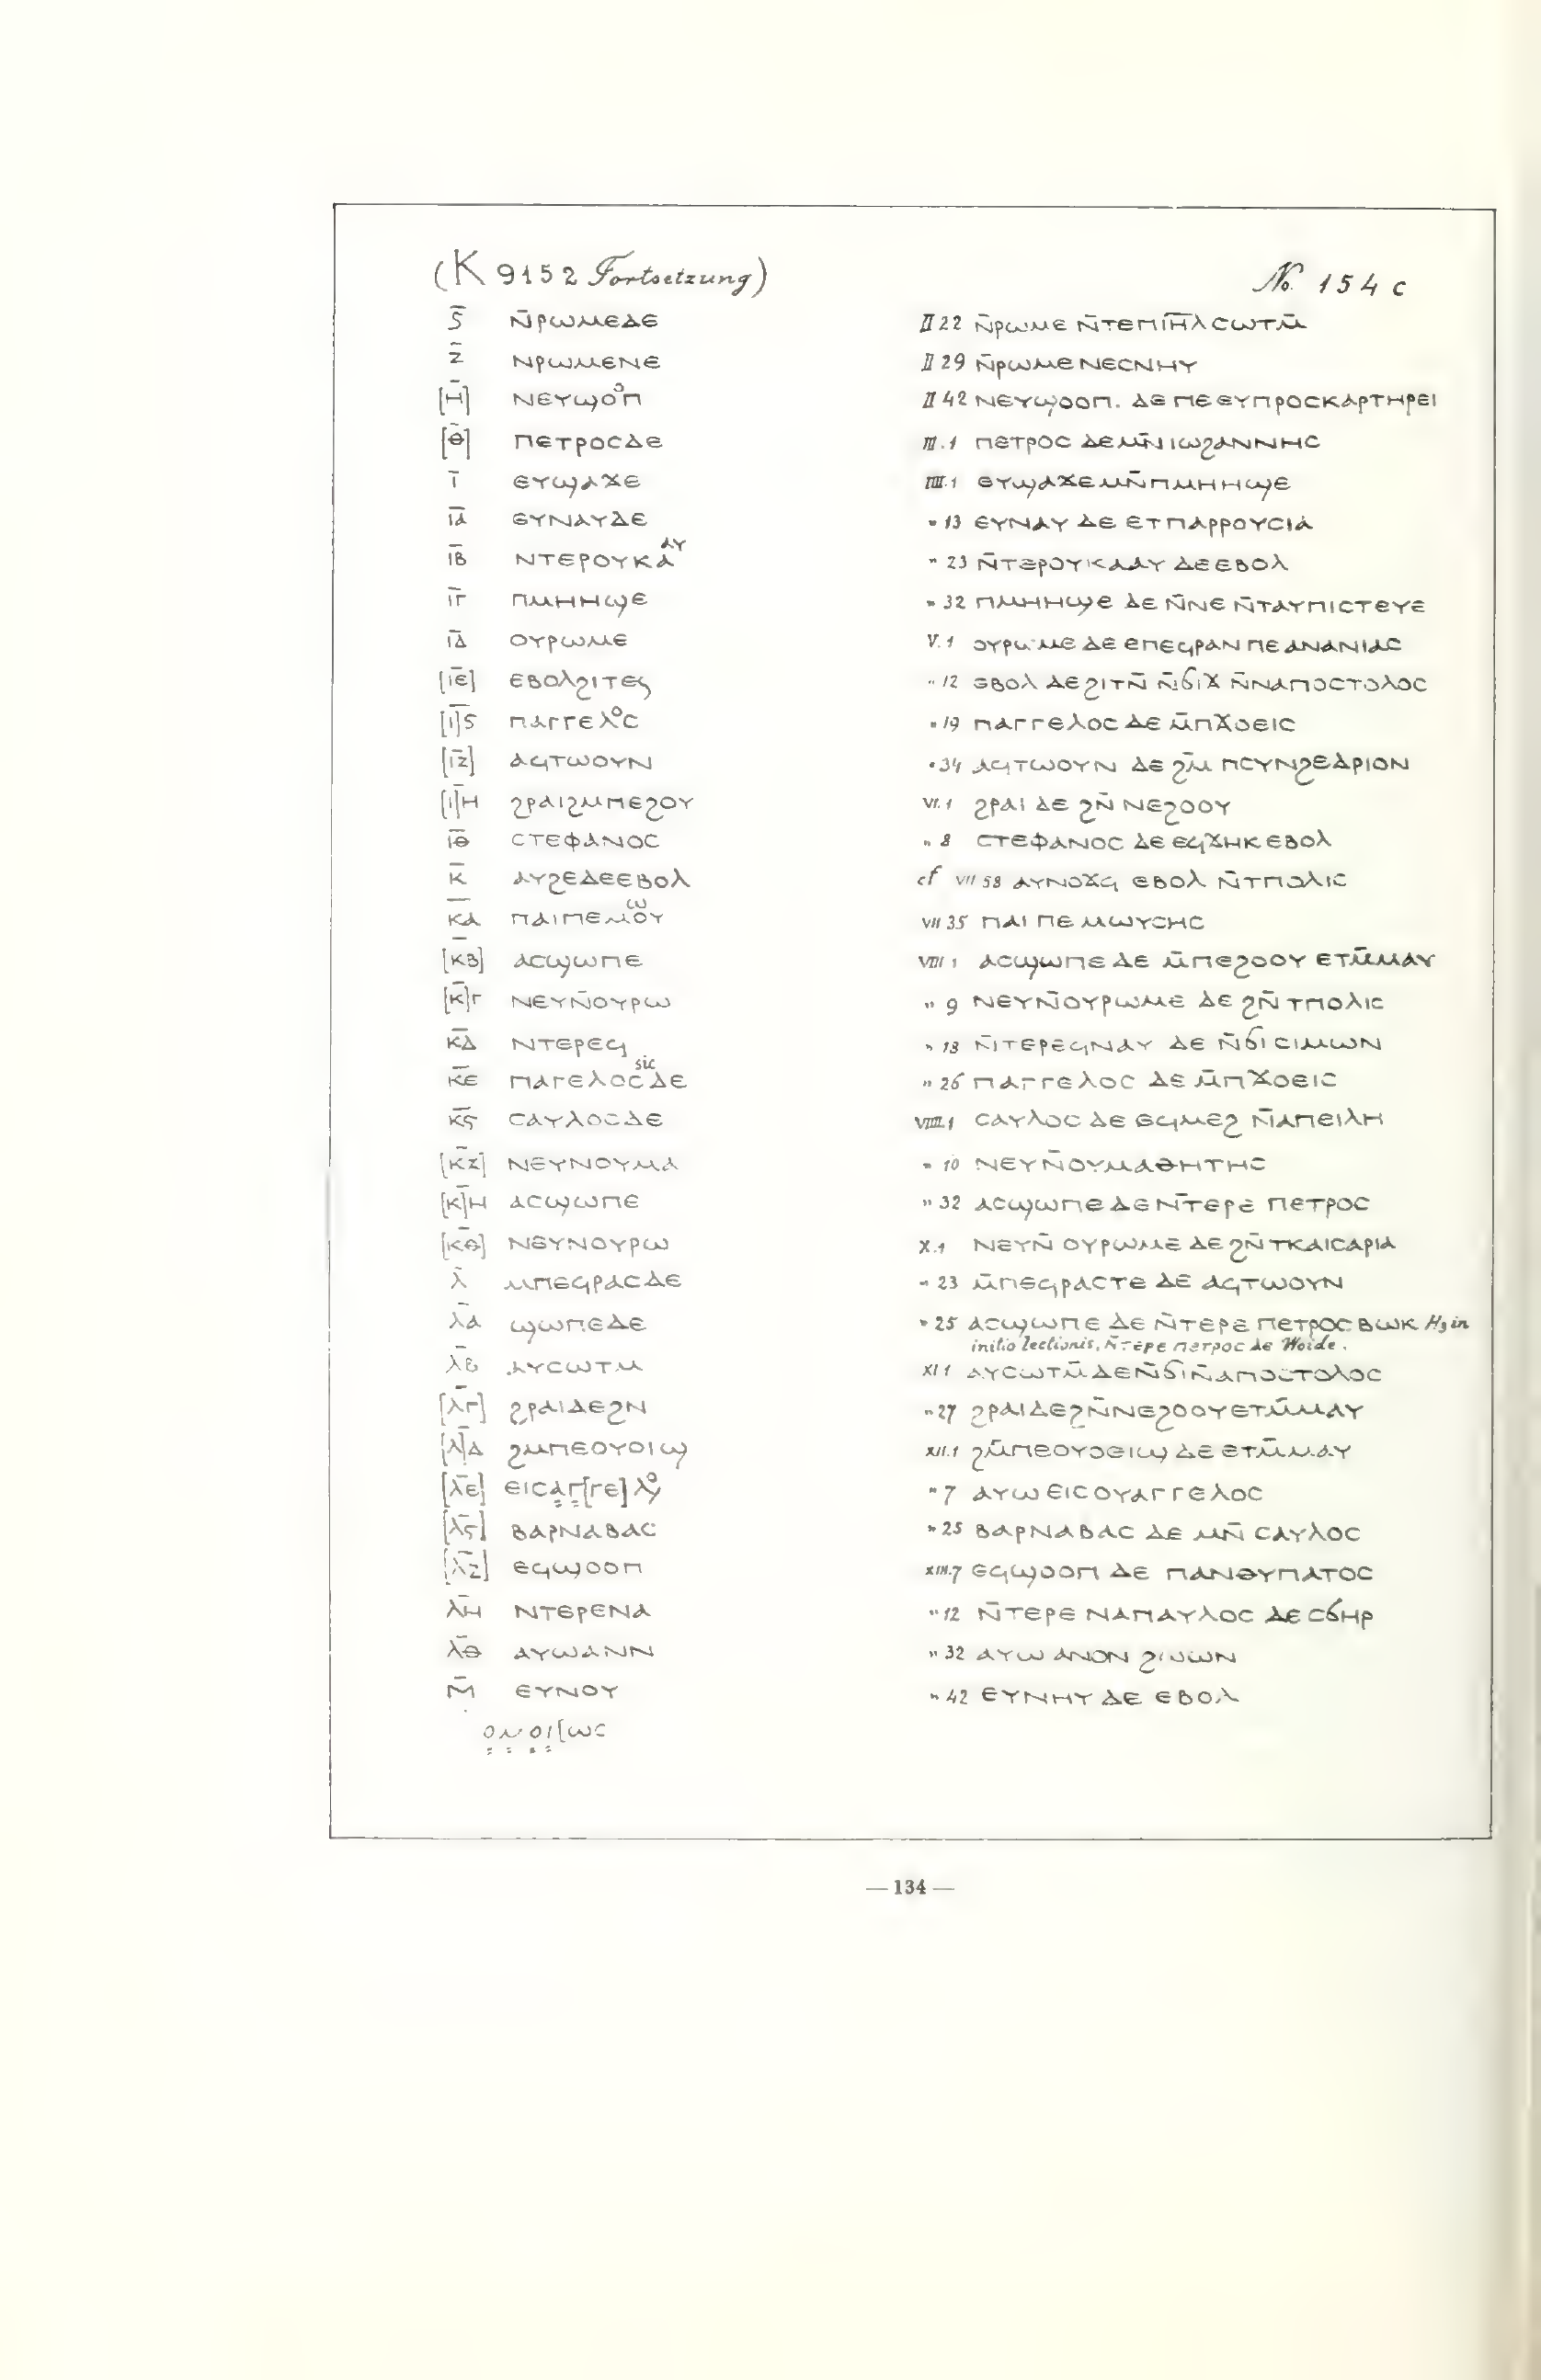 (K 9152 Fortsetzung) No. 154 c
ⲋ̄ ⲛ̄ⲣⲱⲙⲉⲇⲉ II 22 ⲛ̄ⲣⲱⲙⲉ ⲛ̄ⲧⲉⲡⲓ̅ⲏ̅ⲗ ⲥⲱⲧⲙ̄
ⲍ̄ ⲛⲣⲱⲙⲉⲛⲉ II 29 ⲛ̄ⲣⲱⲙⲉ ⲛⲉⲥⲛⲏⲩ
[ⲏ̄] ⲛⲉⲩϣⲟⲟⲡ II 42 ⲛⲉⲩϣⲟⲟⲡ. ⲇⲉ ⲡⲉ ⲉⲩⲡⲣⲟⲥⲕⲁⲣⲧⲏⲣⲉⲓ
[ⲑ̄] ⲡⲉⲧⲣⲟⲥⲇⲉ III.1 ⲡⲉⲧⲣⲟⲥ ⲇⲉ ⲙⲛ̄ ⲓⲱϩⲁⲛⲛⲏⲥ
ⲓ̄ ⲉⲩϣⲁϫⲉ IIII.1 ⲉⲩϣⲁϫⲉ ⲙⲛ̄ⲡⲙⲏⲏϣⲉ
ⲓ̅ⲁ̅ ⲉⲩⲛⲁⲩⲇⲉ " 13 ⲉⲩⲛⲁⲩ ⲇⲉ ⲉⲧⲡⲁⲣⲣⲟⲩⲥⲓⲁ
ⲓ̅ⲃ̅ ⲛⲧⲉⲣⲟⲩⲕⲁⲁⲩ " 23 ⲛ̄ⲧⲉⲣⲟⲩⲕⲁⲁⲩ ⲇⲉ ⲉⲃⲟⲗ
ⲓ̅ⲅ̅ ⲡⲙⲏⲏϣⲉ " 32 ⲡⲙⲏⲏϣⲉ ⲇⲉ ⲛ̄ⲛⲉ ⲛ̄ⲧⲁⲩⲡⲓⲥⲧⲉⲩⲉ
ⲓ̅ⲇ̅ ⲟⲩⲣⲱⲙⲉ V.1 ⲟⲩⲣⲱⲙⲉ ⲇⲉ ⲉⲡⲉϥⲣⲁⲛ ⲡⲉ ⲁⲛⲁⲛⲓⲁⲥ
[ⲓ̅ⲉ̅] ⲉⲃⲟⲗϩⲓⲧⲉ " 12 ⲉⲃⲟⲗ ⲇⲉ ϩⲓⲧⲛ̄ ⲛ̄ϭⲓϫ ⲛ̄ⲛⲁⲡⲟⲥⲧⲟⲗⲟⲥ
[ⲓ̅]ⲋ̅ ⲡⲁⲅⲅⲉⲗⲟⲥ " 19 ⲡⲁⲅⲅⲉⲗⲟⲥ ⲇⲉ ⲙ̄ⲡϫⲟⲉⲓⲥ
[ⲓ̅ⲍ̅] ⲁϥⲧⲱⲟⲩⲛ " 34 ⲁϥⲧⲱⲟⲩⲛ ⲇⲉ ϩⲙ̄ ⲡⲥⲩⲛϩⲉⲇⲣⲓⲟⲛ
[ⲓ̅]ⲏ ϩⲣⲁⲓϩⲙⲡⲉϩⲟⲩ VI.1 ϩⲣⲁⲓ ⲇⲉ ϩⲛ̄ ⲛⲉϩⲟⲟⲩ
ⲓ̅ⲑ̅ ⲥⲧⲉⲫⲁⲛⲟⲥ " 8 ⲥⲧⲉⲫⲁⲛⲟⲥ ⲇⲉ ⲉϥϫⲏⲕ ⲉⲃⲟⲗ
ⲕ̄ ⲁⲩϩⲉⲇⲉⲉⲃⲟⲗ cf VII 58 ⲁⲩⲛⲟϫϥ ⲉⲃⲟⲗ ⲛ̄ⲧⲡⲟⲗⲓⲥ
ⲕ̅ⲁ̅ ⲡⲁⲓⲡⲉⲙⲱⲟⲩ VII 35 ⲡⲁⲓ ⲡⲉ ⲙⲱⲩⲥⲏⲥ
[ⲕ̅ⲃ̅] ⲁⲥϣⲱⲡⲉ VIII 1 ⲁⲥϣⲱⲡⲉ ⲇⲉ ⲙ̄ⲡⲉϩⲟⲟⲩ ⲉⲧⲙ̄ⲙⲁⲩ
[ⲕ̅]ⲅ ⲛⲉⲩⲛ̄ⲟⲩⲣⲱ " 9 ⲛⲉⲩⲛ̄ⲟⲩⲣⲱⲙⲉ ⲇⲉ ϩⲛ̄ ⲧⲡⲟⲗⲓⲥ
ⲕ̅ⲇ̅ ⲛⲧⲉⲣⲉϥ " 18 ⲛ̄ⲧⲉⲣⲉϥⲛⲁⲩ ⲇⲉ ⲛ̄ϭⲓ ⲥⲓⲙⲱⲛ
ⲕ̅ⲉ̅ ⲡⲁⲅⲉⲗⲟⲥ sic ⲇⲉ " 26 ⲡⲁⲅⲅⲉⲗⲟⲥ ⲇⲉ ⲙ̄ⲡϫⲟⲉⲓⲥ
ⲕ̅ⲋ̅ ⲥⲁⲩⲗⲟⲥⲇⲉ VIIII.1 ⲥⲁⲩⲗⲟⲥ ⲇⲉ ⲉϥⲙⲉϩ ⲛ̄ⲁⲡⲉⲓⲗⲏ
[ⲕ̅ⲍ̅] ⲛⲉⲩⲛⲟⲩⲙⲁ " 10 ⲛⲉⲩⲛ̄ⲟⲩⲙⲁⲑⲏⲧⲏⲥ
[ⲕ̅]ⲏ ⲁⲥϣⲱⲡⲉ " 32 ⲁⲥϣⲱⲡⲉ ⲇⲉ ⲛ̄ⲧⲉⲣⲉ ⲡⲉⲧⲣⲟⲥ
[ⲕ̅ⲑ̅] ⲛⲉⲩⲛⲟⲩⲣⲱ X.1 ⲛⲉⲩⲛ̄ ⲟⲩⲣⲱⲙⲉ ⲇⲉ ϩⲛ̄ ⲧⲕⲁⲓⲥⲁⲣⲓⲁ
ⲗ̄ ⲙⲡⲉϥⲣⲁⲥⲇⲉ " 23 ⲙ̄ⲡⲉϥⲣⲁⲥⲧⲉ ⲇⲉ ⲁϥⲧⲱⲟⲩⲛ
ⲗ̅ⲁ̅ ϣⲱⲡⲉⲇⲉ " 25 ⲁⲥϣⲱⲡⲉ ⲇⲉ ⲛ̄ⲧⲉⲣⲉ ⲡⲉⲧⲣⲟⲥ ⲃⲱⲕ Hz in
initio lectionis, ⲛ̄ⲧⲉⲣⲉ ⲡⲉⲧⲣⲟⲥ ⲇⲉ Woide.
ⲗ̅ⲃ̅ ⲁⲩⲥⲱⲧⲙ XI 1 ⲁⲩⲥⲱⲧⲙ̄ ⲇⲉ ⲛ̄ϭⲓ ⲛ̄ⲁⲡⲟⲥⲧⲟⲗⲟⲥ
[ⲗ̅ⲅ̅] ϩⲣⲁⲓⲇⲉϩⲛ " 27 ϩⲣⲁⲓ ⲇⲉ ϩⲛ̄ ⲛⲉϩⲟⲟⲩ ⲉⲧⲙ̄ⲙⲁⲩ
[ⲗ̅]ⲇ ϩⲙⲡⲉⲟⲩⲟⲓϣ XII.1 ϩⲙ̄ⲡⲉⲟⲩⲟⲉⲓϣ ⲇⲉ ⲉⲧⲙ̄ⲙⲁⲩ
[ⲗ̅ⲉ̅] ⲉⲓⲥⲁ̤ⲅ̤[ⲅⲉ]ⲗⲟ " 7 ⲁⲩⲱ ⲉⲓⲥ ⲟⲩⲁⲅⲅⲉⲗⲟⲥ
[ⲗ̅ⲋ̅] ⲃⲁⲣⲛⲁⲃⲁⲥ " 25 ⲃⲁⲣⲛⲁⲃⲁⲥ ⲇⲉ ⲙⲛ̄ ⲥⲁⲩⲗⲟⲥ
[ⲗ̅ⲍ̅] ⲉϥϣⲟⲟⲡ XIII.7 ⲉϥϣⲟⲟⲡ ⲇⲉ ⲡⲁⲛⲑⲩⲡⲁⲧⲟⲥ
ⲗ̅ⲏ̅ ⲛⲧⲉⲣⲉⲛⲁ " 12 ⲛ̄ⲧⲉⲣⲉ ⲛⲁⲡⲁⲩⲗⲟⲥ ⲇⲉ ⲥϭⲏⲣ
ⲗ̅ⲑ̅ ⲁⲩⲱⲁⲛⲛ " 32 ⲁⲩⲱ ⲁⲛⲟⲛ ϩⲱⲱⲛ
ⲙ̄ ⲉⲩⲛⲟⲩ " 42 ⲉⲩⲛⲏⲩ ⲇⲉ ⲉⲃⲟⲗ
ⲟ̤ⲙ̤ⲟ̤ⲓ̤[ⲱⲥ
— 134 —